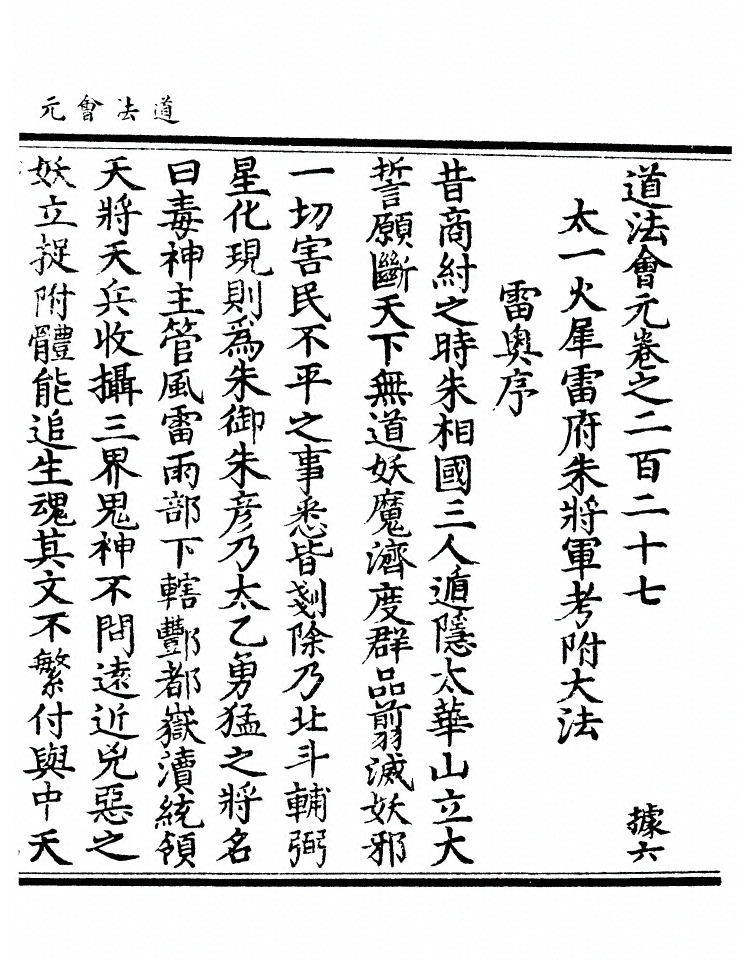 道法會元
道法會元卷之二百二十七
據六
太一火犀雷府朱將軍考附大法
雷奧序
昔商紂之時朱相國三人遁隱太華山立大
誓願斷天下無道妖魔濟度群品翦滅妖邪
一切害民不平之事悉皆剗除乃北斗輔弼
星化現則為朱御朱彥乃太乙勇猛之將名
曰毒神主管風雷雨部下轄酆都嶽瀆統領
天將天兵收攝三界鬼神不問遠近兇惡之
妖立捉附體能追生魂其文不繁付與中天